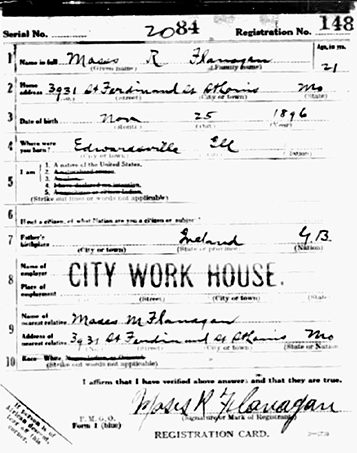 Serial No. 2084 Registration No. 148
1 Name in full Moses R Flanagan Age, in yrs. 21
(Given name) (Family name)
2 Home address 3931 St Ferdinand St St Louis Mo
(Street) (City or town) (State)
3 Date of birth Nov 25 1896
(Month) (Day) (Year)
4 Where were you born? Edwardsville Ill
(City or town) (State) (Nation)
5 I am 1. A native of the United States.
2. A naturalized citizen
3. An alien
4. I have declared my intention
5.
(Strike out lines or words not applicable)
6 If not a citizen, of what Nation are you a citizen or subject?
7 Father's birthplace Ireland G.B.
(City or town) (State or province) (Nation)
8 Name of employer
CITY WORK HOUSE.
Place of employment
(Street) (City or town) (State)
9 Name of nearest relative Moses M Flanagan
Address of nearest relative 3931 St Ferdinand St St Louis Mo
(Street) (City or town) (State or Nation)
10 Race—White
(Strike out words not applicable)
I affirm that I have verified above answers and that they are true.
Moses R Flanagan
P. M. G. O.
Form 1 (blue) (Signature or Mark of Registrant)
REGISTRATION CARD.
If person is of African descent, tear off this corner.